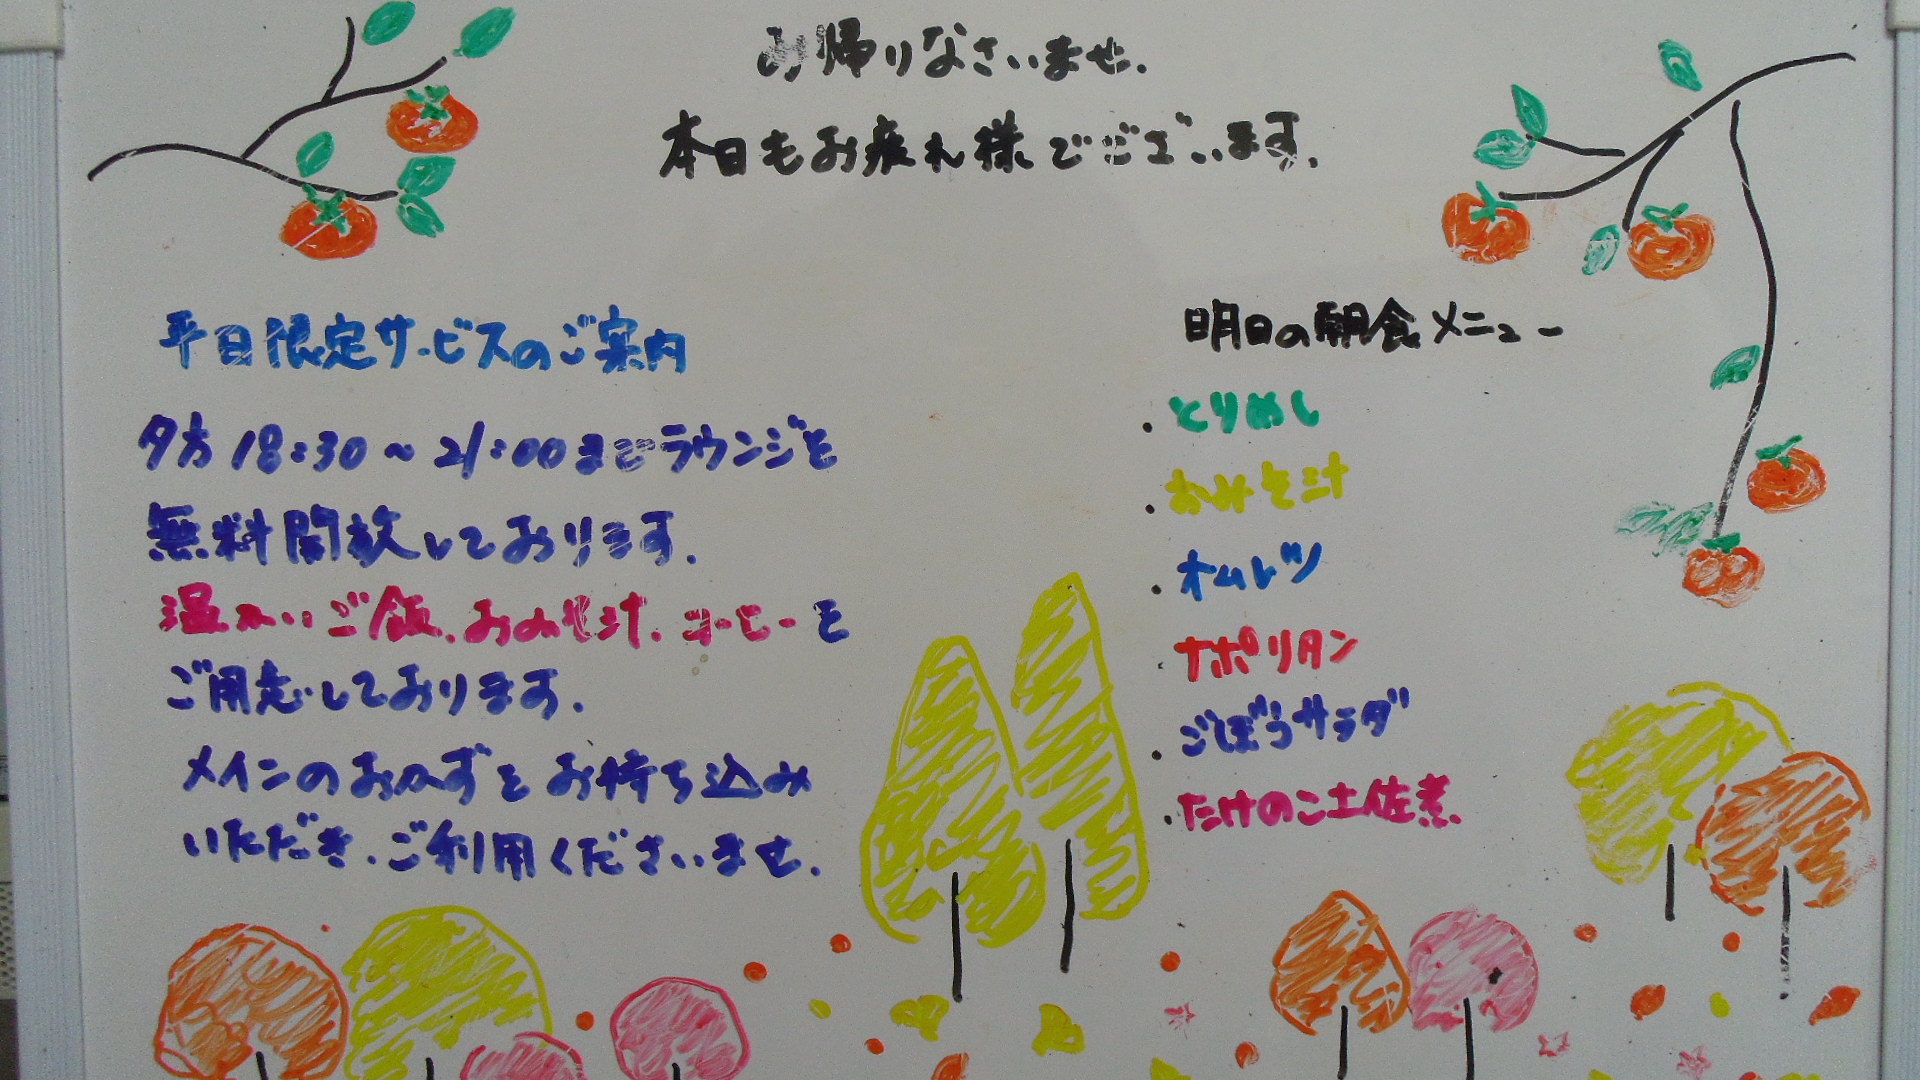 お帰りなさいませ.
本日もお疲れ様でございます.
平日限定サービスのご案内
夕方18:30～21:00までラウンジを
無料開放しております.
温かいご飯、おみそ汁、コーヒーを
ご用意しております.
メインのおかずをお持ち込み
いただき、ご利用くださいませ.
明日の朝食メニュー
・とりめし
・おみそ汁
・オムレツ
・ナポリタン
・ごぼうサラダ
・たけのこ土佐煮